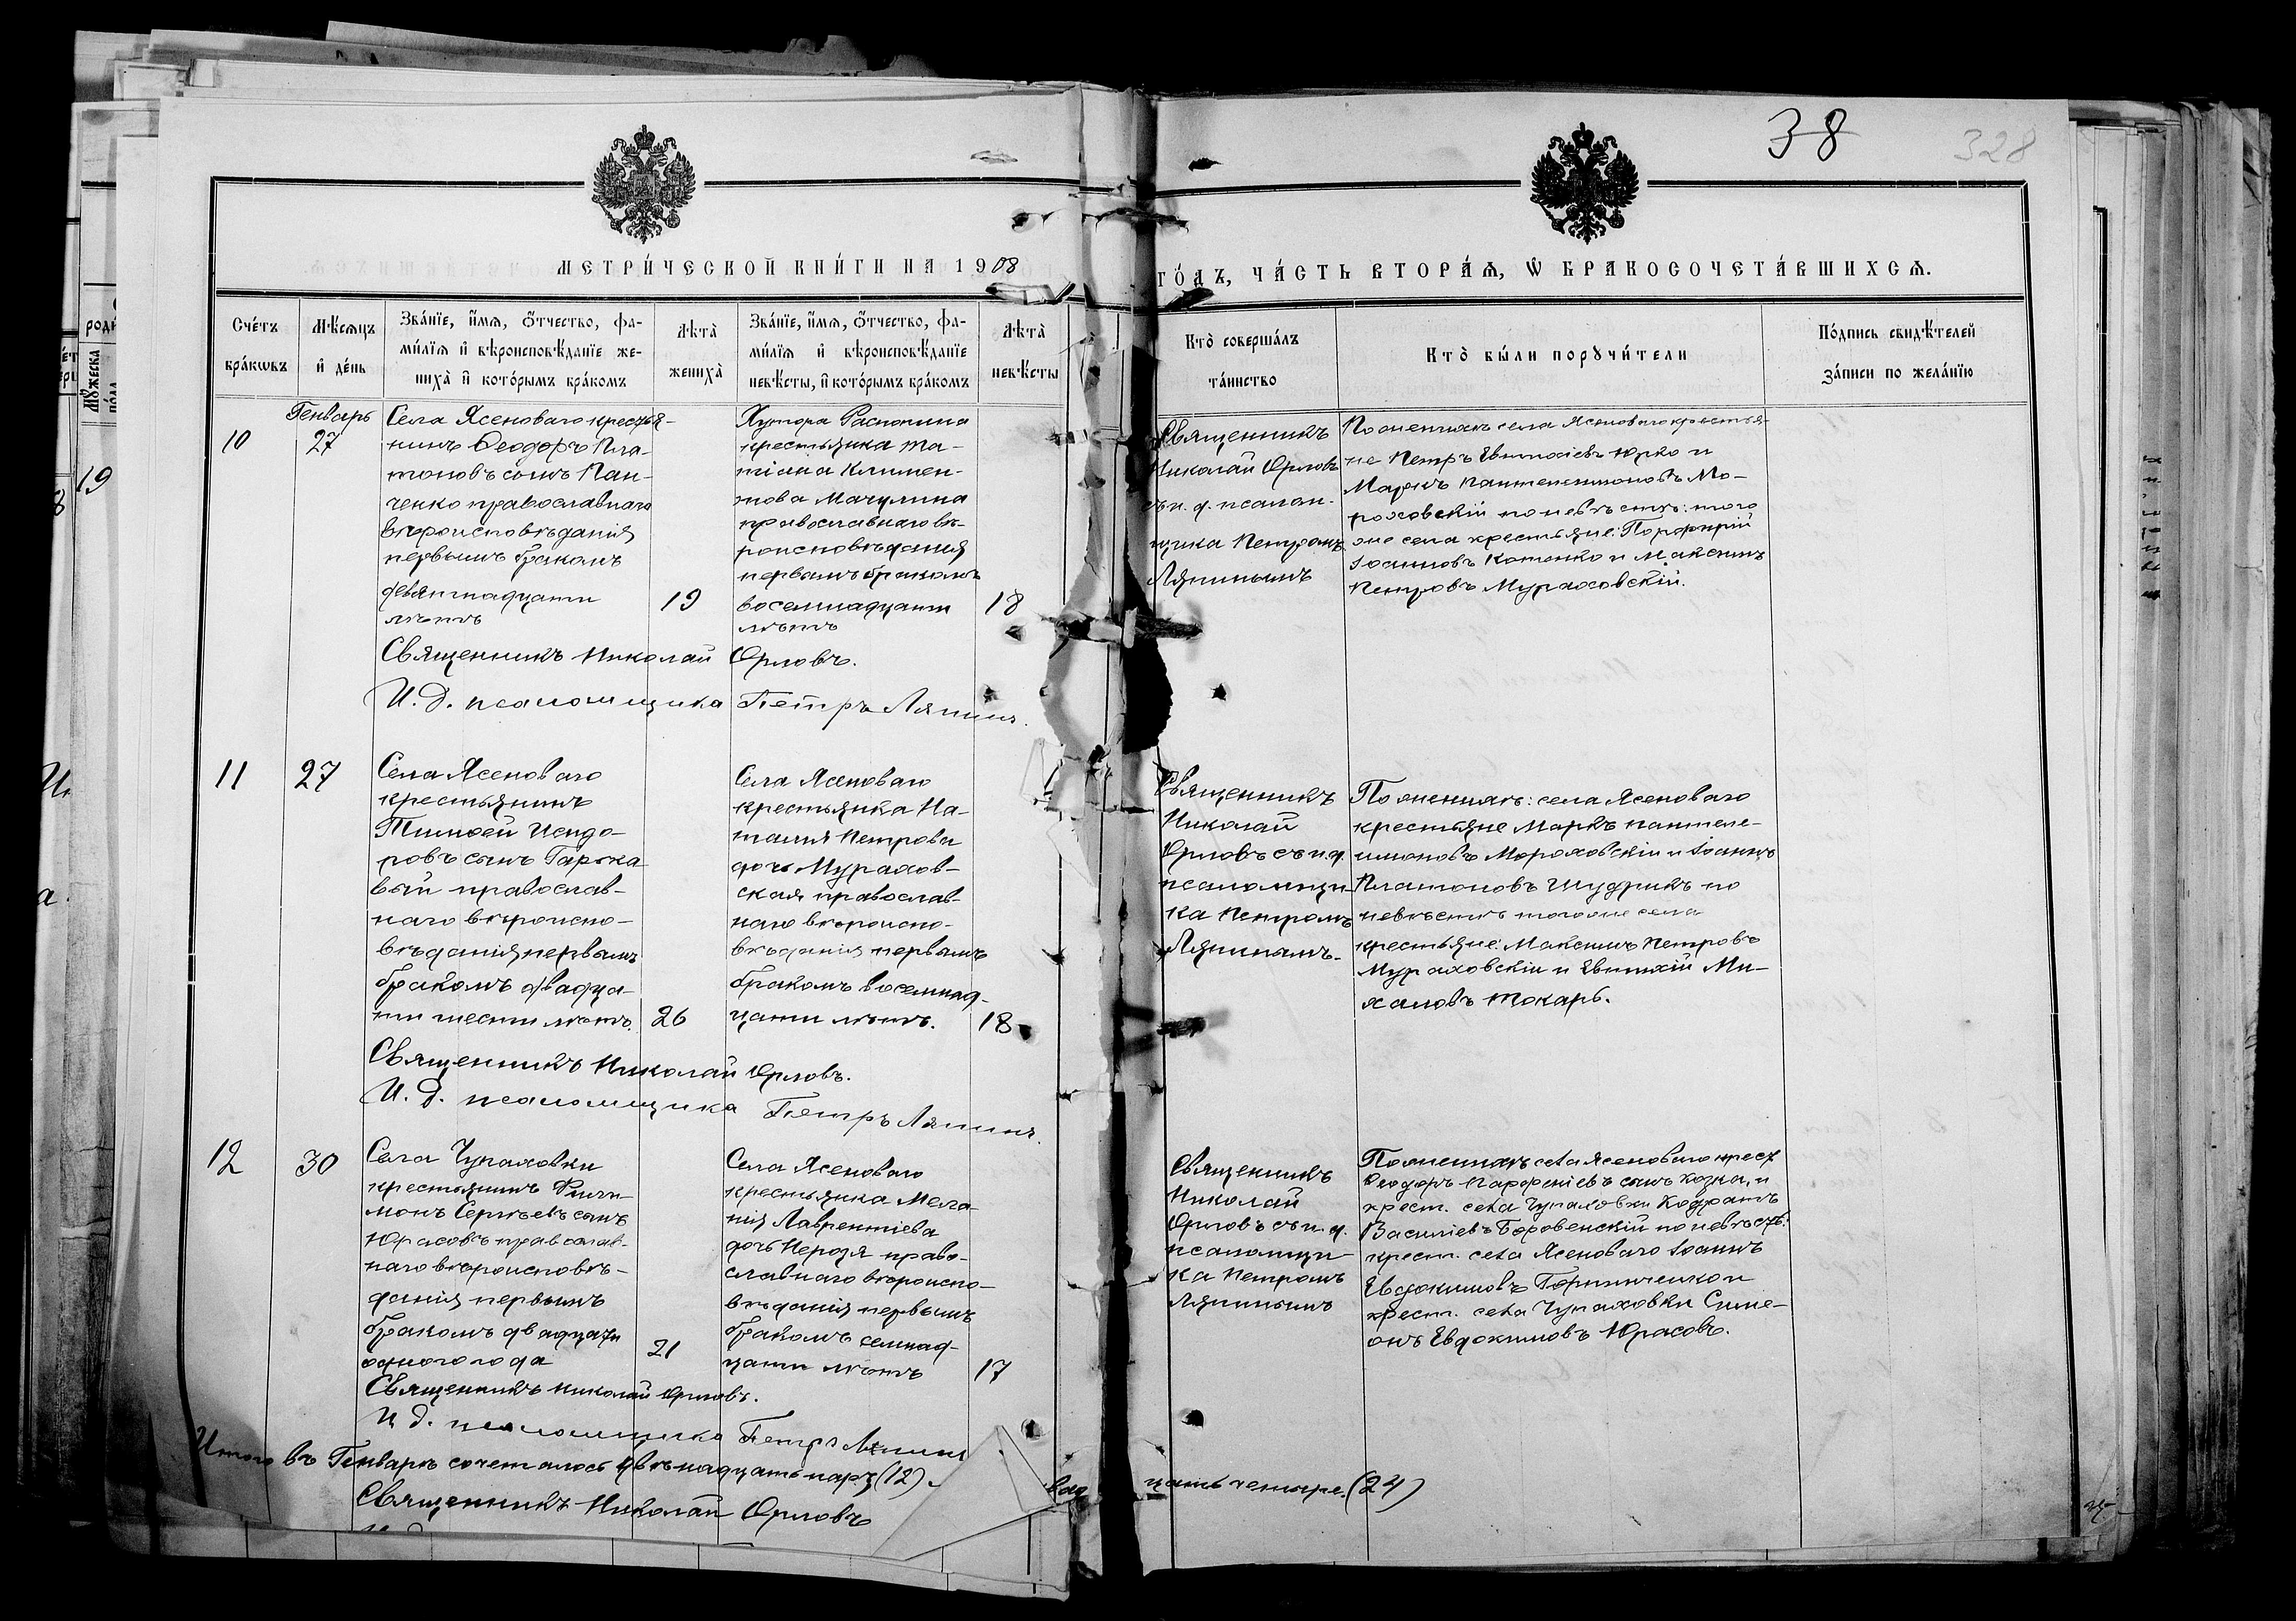 38
328
МЕТРИ́ЧЕСКОЙ КНИ́ГИ НА 1908
ГО́ДЪ, ЧА́СТЬ ВТОРА́Ѧ, Ѡ҆ БРАКОСОЧЕТА́ВШИХСѦ.
Сче́тъ
бра́кѡвъ
Мѣ́сѧцъ
и҆ де́нь
Зва́нїе, и҆́мѧ, о҆́тчество, фа-
ми́лїѧ и҆ вѣроисповѣ́данїе же-
ниха̀ и҆ кото́рымъ бра́комъ
Лѣ́та̀
жениха̀
Зва́нїе, и҆́мѧ, о҆́тчество, фа-
ми́лїѧ и҆ вѣроисповѣ́данїе
невѣ́сты, и҆ кото́рымъ бра́комъ
Лѣ́та̀
невѣ́сты
Кто̀ соверша́лъ
та́инство
Кто̀ бы́ли порꙋчи́тели
По́дпись свидѣ́телей
за́писи по жела́нїю
10
Генварь
27
Села Ясеноваго крестья-
нинъ Ѳеодоръ Пла-
тоновъ сынъ Пан-
ченко православнаго
вѣроисповѣданія
первымъ бракомъ
девятнадцати
лѣтъ
19
Хутора Распопина
крестьянка Та-
тіана Климен-
това Мачулина
православнаго вѣ-
роисповѣданія
первымъ бракомъ
восемнадцати
лѣтъ
18
Священникъ Николай Орловъ.
И. д. псаломщика Петръ Ляпинъ.
Священникъ
Николай Орловъ
съ и. д. псалом-
щика Петромъ
Ляпинымъ
По женихѣ села Ясеноваго крестья-
не Петръ Евтихіевъ Юрко и
Маркъ Пантелеимоновъ Мо-
роховскій по невѣстѣ: того
же села крестьяне: Порфирій
Іоанновъ Котенко и Максимъ
Петровъ Мураховскій.
11
27
Села Ясеноваго
крестьянинъ
Тимоѳей Исидо-
ровъ сынъ Гарька
вый православ-
наго вѣроиспо-
вѣданія первымъ
бракомъ двадца-
ти шести лѣтъ.
26
Села Ясеноваго
крестьянка На-
талія Петрова
дочь Мурахов-
ская православ-
наго вѣроиспо-
вѣданія первымъ
бракомъ восемнад-
цати лѣтъ.
18
Священникъ Николай Орловъ.
И. д. псаломщика Петръ Ляпинъ.
Священникъ
Николай
Орловъ съ и. д.
псаломщи-
ка Петромъ
Ляпинымъ.
По женихѣ: села Ясеноваго
крестьяне Маркъ Пантеле-
имоновъ Мороховскій и Іоаннъ
Платоновъ Шудрикъ по
невѣстѣ того же села
крестьяне: Максимъ Петровъ
Мураховскій и Евтихій Ми-
халовъ Токарь.
12
30
Села Чупаховки
крестьянинъ Фили-
монъ Сергѣевъ сынъ
Юрасовъ православ-
наго вѣроисповѣ-
данія первымъ
бракомъ двадцати
одного года
21
Села Ясеноваго
крестьянка Мела-
нія Лаврентіева
дочь Нерозя право-
славнаго вѣроиспо-
вѣданія первымъ
бракомъ семнад-
цати лѣтъ
17
Священникъ Николай Орловъ.
И д. псаломщика Петръ Ляпинъ
Священникъ
Николай
Орловъ съ и. д.
псаломщи-
ка Петромъ
Ляпинымъ
По женихѣ села Ясеноваго крест
Ѳеодоръ Парѳеніевъ сынъ Козка, и
крест. села Чупаховки Кодратъ
Василіевъ Боровенскій по невѣстѣ:
крест. села Ясеноваго Іоаннъ
Евдокимовъ и
крест. села Чупаховки Симе-
онъ Евдокимовъ Юрасовъ.
Итого въ Генварѣ сочеталось двѣнадцать паръ (12).
вад цать четыре. (24)
Священникъ Николай Орловъ